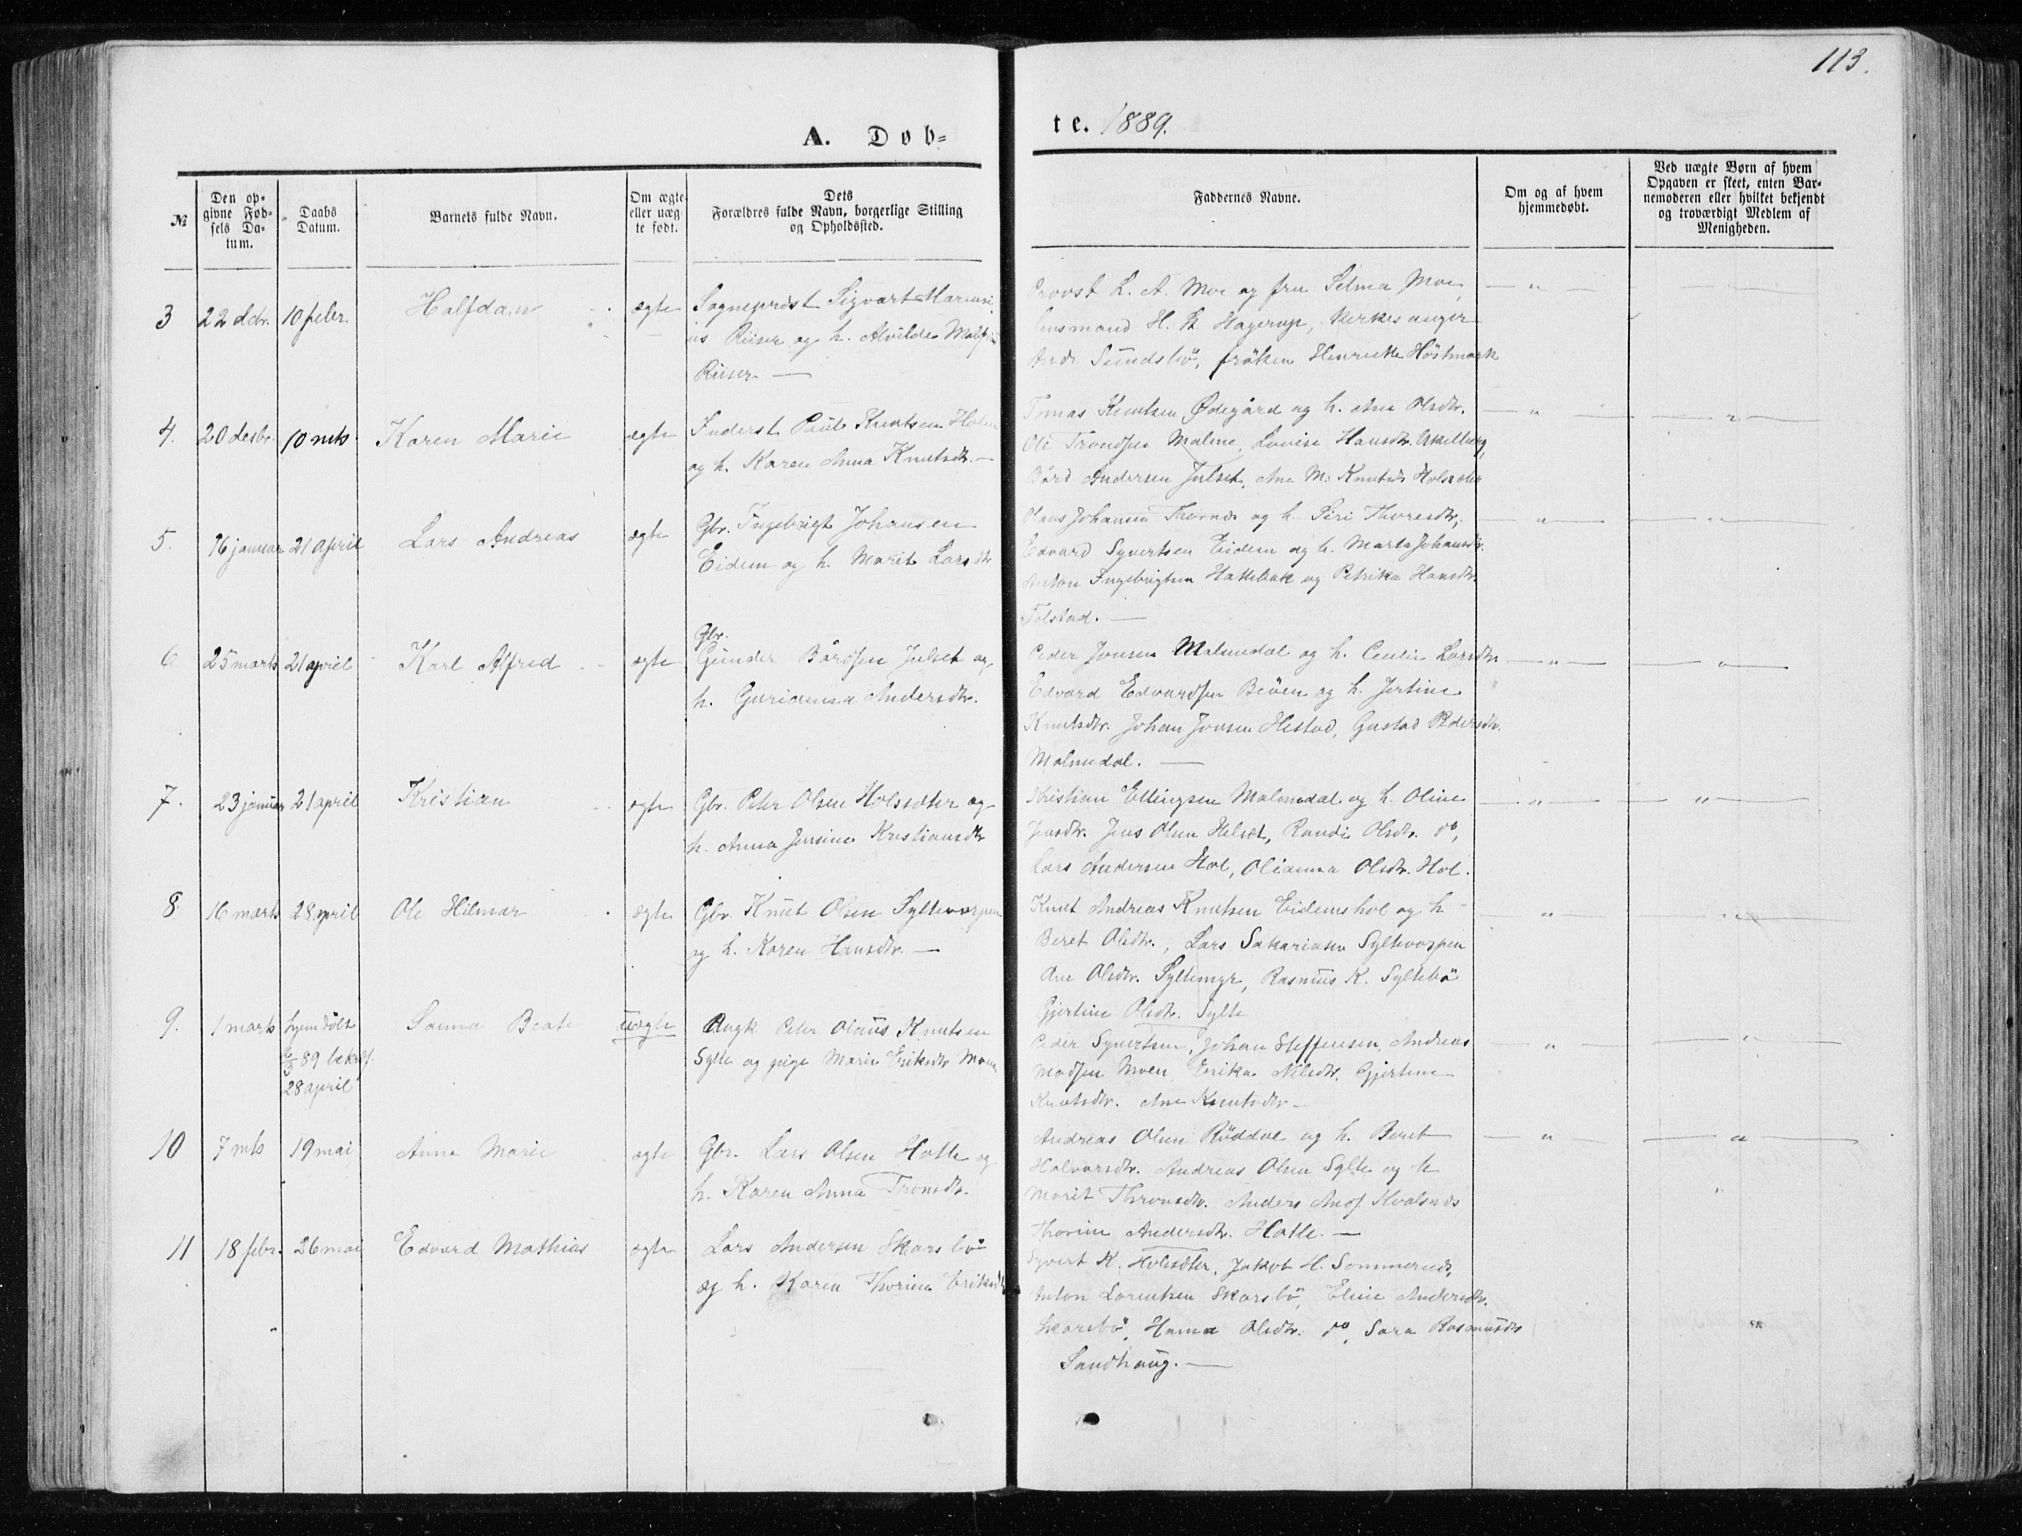 113.
A. Døb=
te. 1889.
№
Den op=
givne Fød=
sels Da=
tum.
Daabs
Datum.
Barnets fulde Navn.
Om ægte
eller uæg=
te født.
Dets
Forældres fulde Navn, borgerlige Stilling
og Opholdssted.
Faddernes Navne.
Om og af hvem
hjemmedøbt.
Ved uægte Børn af hvem
Opgaven er skeet, enten Bar=
nemoderen eller hvilket bekjendt
og troværdigt Medlem af
Menigheden.
3 22 dcbr. 10 febr. Halfdan ægte
Sogneprest Sigvart
Riiser og h. Alvilde
Riiser
Provst L. A. Moe og fru Selma Moe,
Lensmand H. St Hagerup, kirkesanger
Andr. Sundsbö, fröken Henriette Höstmark
4. 20 desbr. 10 mts. Karen Marie ægte
Inderst Paul Knutsen Holen
og h. Karen Anna Knutsdtr.
Tomas Knutsen Ødegård og h. Ane Olsdtr.
Ole Trondsen Malme, Lovise Hansdtr.
Bård Andersen Julset, Ane M. Knutsdtr Holsæter
5. 16 januar 21 april Lars Andreas ægte
Gbr. Ingebrigt Johansen
Eidem og h. Marit Larsdtr
Olaus Johansen Thornes og h. Siri Thoresdtr,
Edvard Syvertsen Eidem og h. Marta Johansdtr.
Anton Ingebrigtsen Hattebak og Petrika Hansdtr.
Tolstad.
6 25 marts 21 april Karl Alfred ægte
Gbr.
Gunder Bårdsen Julset og
h. Gurianna Andersdtr.
Peder Jonsen Malmedal og h. Cecilie Larsdtr
Edvard Edvardsen Beöen og h. Jertine
Knutsdtr. Johan Jonsen Hestad, Gustad Pedersdtr.
Malmedal.
7. 23 januar 21 april Kristian ægte
Gbr. Peter Olsen Holsæter og
h. Anna Jensine Kristiansdtr
Kristian Ellingsen Malmedal og h. Oline
Jensdtr. Jens Olsen Helset, Randi Olsdtr. do,
Lars Andersen Hol, Olianna Olsdtr. Hol.
8 16 marts 28 april Ole Hilmar ægte
Gbr. Knut Olsen Syltevorpen
og h. Karen Hansdtr.
Knut Andreas Knutsen Eidemshol og h
Beret Olsdtr., Lars Sakariasen Syltevorpen
Ane Olsdtr. Syltemyr, Rasmus K. Syltebö
Gjertine Olsdtr. Sylte
9. 1 marts hjemdöbt
89 bekref.
28 april
Sanna Beate uægte
Ungk. Peter Olaus Knutsen
Sylte og pige Marie Eriksdtr Moen
Peder Syvertsen, Johan Steffensen, Andreas
Madsen Moen, Erika Nilsdtr, Gjertine
Knutsdtr. Ane Knutsdtr
10 7 mts 19 mai Anna Marie ægte
Gbr. Lars Olsen Hatle og
h. Karen Anna Tronsdtr.
Andreas Olsen Röddal og h. Beret
Halvorsdtr. Andreas Olsen Sylte og h
Marit Thronsdtr. Anders And. Kvalsnes
Thorine Andersdtr. Hatle.
11 18 febr. 26 mai Edvard Mathias ægte
Lars Andersen Skarsbö
og h. Karen Thorine Eriksdtr
Syvert K. Holesæter, Jakob H. Sommernes,
Anton Lorentsen Skarsbö, Eline Andersdtr.
Skarsbö, Hanna Olsdtr. do, Sara Rasmusdtr
Sandhaug.